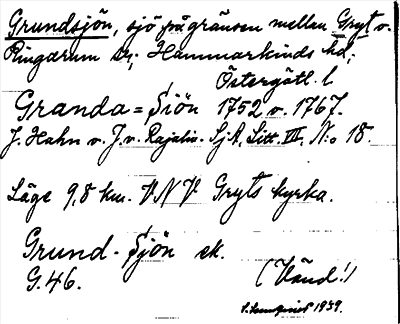 Grundsjön, sjö på gränsen mellan Gryt o.
Ringarum sn; Hammarkinds hd;
Östergötl. l
Granda = Siön 1752 o. 1767.
J. Hahn o. J. v. Rajalin. Sj.A. Litt. III, No 18.
Läge 9,8 km. VNV Gryts kyrka.
Grund-Sjön ek.
G.46.
(Vänd!)
1939.